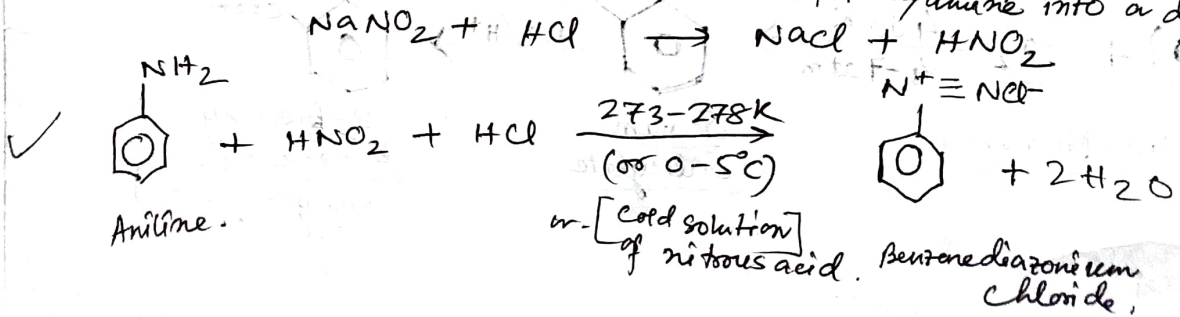 into a d
NaNO₂ + HCl ⟶ NaCl + HNO₂
NH₂
N⁺ ≡ NCl⁻
+ HNO₂ + HCl 273-278K ⟶ + 2H₂O
(or 0-5°C)
Aniline. or [Cold solution]
of nitrous acid. Benzenediazonium
Chloride,